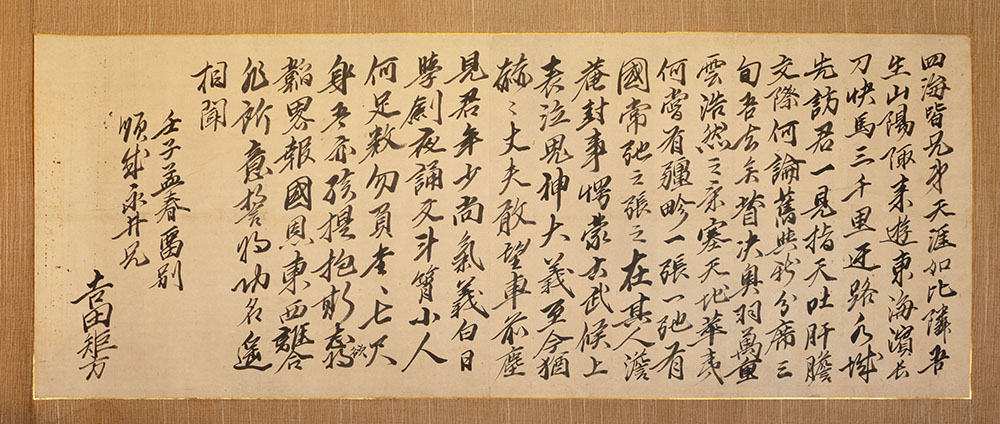 四海皆兄弟天涯如比隣吾
生山陽陬来遊東海濱長
刀快馬三千里迂路水城
先訪君一見指天吐肝膽
交際何論舊與新分席三
旬吾去矣眥决奥羽萬重
雲浩然之氣塞天地華夷
何嘗有疆畛一張一弛有
國常弛之張之在其人澹
菴封事愕蒙古武候上
表泣鬼神大義至今猶
赫々丈夫敢望車前塵
見君年少尚氣義白日
學劍夜誦文斗筲小人
何足数勿負堂々七尺
身吾亦孩提抱斯志欲將
韜畧報國恩東西離合
非所意誓將功名遙
相聞
壬子孟春留別
順成永井兄
吉田矩方